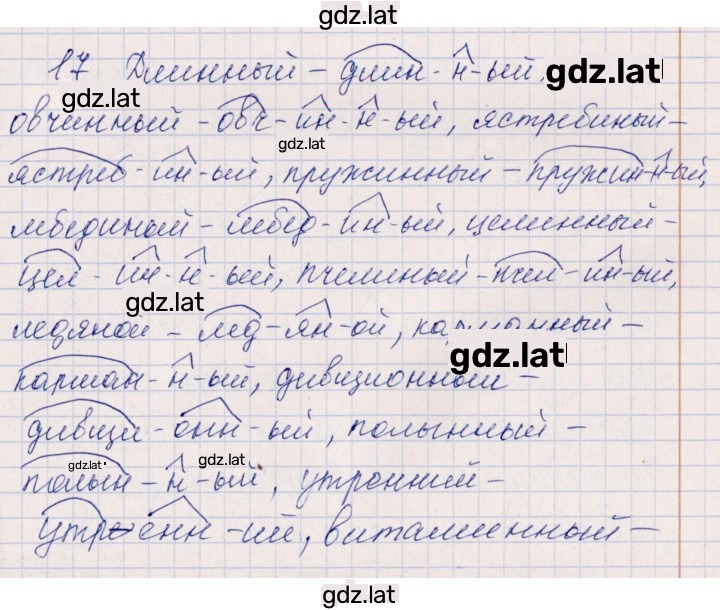 gdz.lat
17 Длинный - длин-н-ый, gdz.lat
gdz.lat
овчинный - овч-ин-н-ый, ястребиный -
gdz.lat
ястреб-ин-ый, пружинный - пружин-н-ый,
лебединый - лебед-ин-ый, целинный -
цел-ин-н-ый, пчелиный - пчел-ин-ый,
gdz.lat
ледяной - лед-ян-ой, карманный -
gdz.lat
карман-н-ый, дивизионный -
дивизи-онн-ый, полынный -
gdz.lat gdz.lat
полын-н-ый, утренний -
утр-енн-ий, витаминный -
gdz.lat